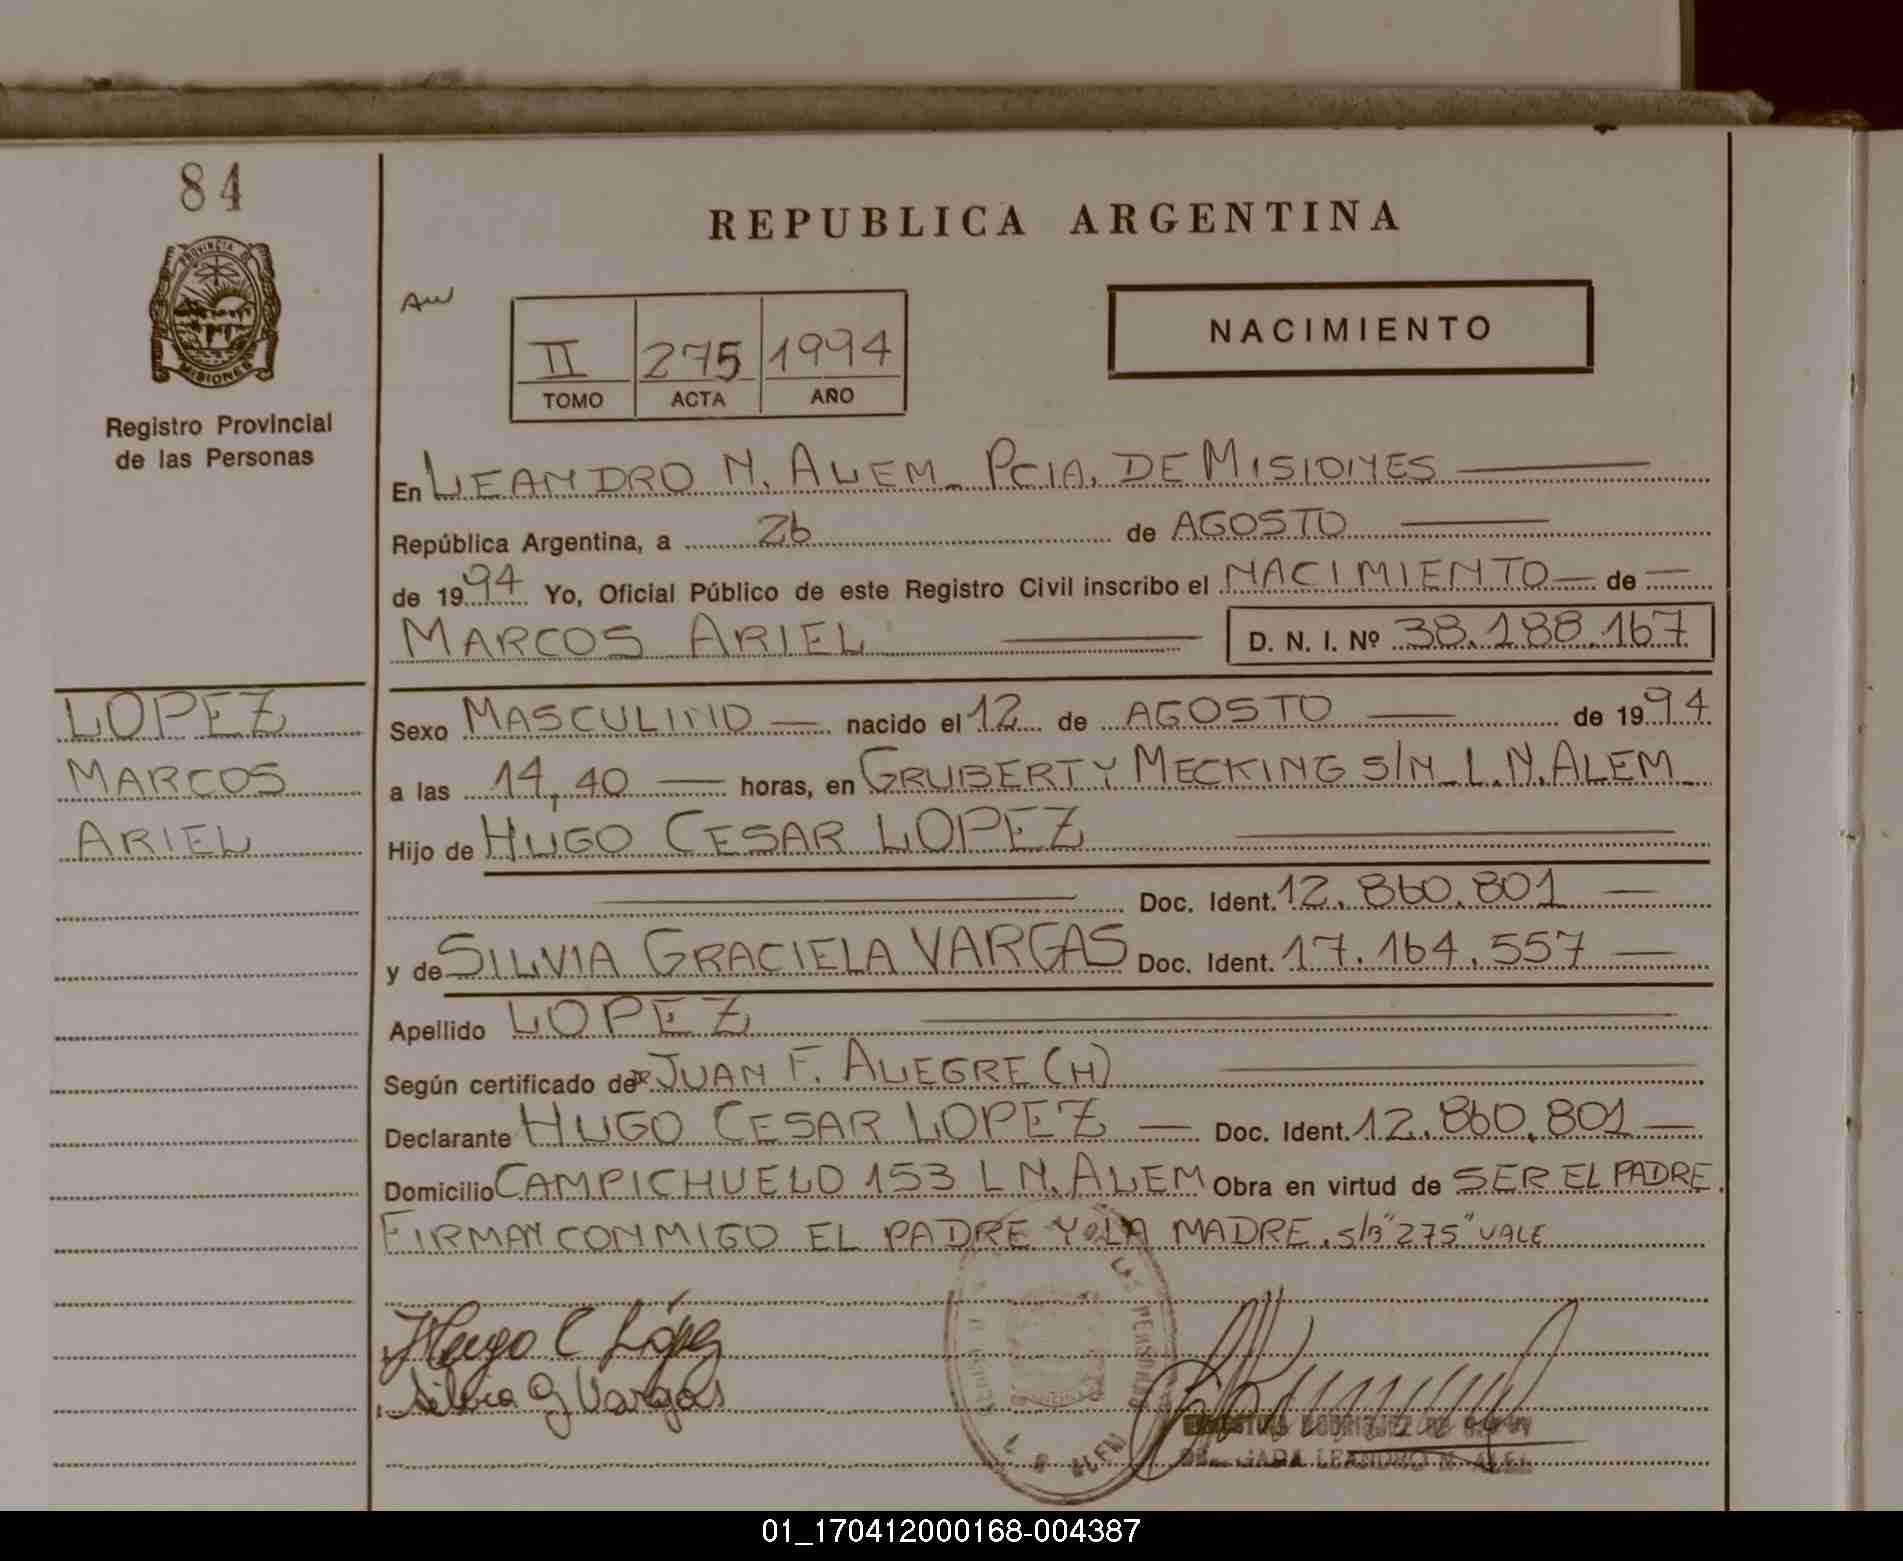 84
PROVINCIA DE
MISIONES
Registro Provincial
de las Personas
REPUBLICA ARGENTINA
II 275 1994
TOMO ACTA AÑO
NACIMIENTO
En LEANDRO N. ALEM_ PCIA. DE MISIONES
República Argentina, a 26 de AGOSTO
de 1994 Yo, Oficial Público de este Registro Civil inscribo el NACIMIENTO de
MARCOS ARIEL D. N. I. Nº 38.188.167
LOPEZ
MARCOS
ARIEL
Sexo MASCULINO nacido el 12 de AGOSTO de 1994
a las 14,40 horas, en GRUBERT Y MECKING S/N_ L.N. ALEM_
Hijo de HUGO CESAR LOPEZ
Doc. Ident. 12.860.801
y de SILVIA GRACIELA VARGAS Doc. Ident. 17.164.557
Apellido LOPEZ
Según certificado de JUAN F. ALEGRE (H)
Declarante HUGO CESAR LOPEZ Doc. Ident. 12.860.801
Domicilio CAMPICHUELO 153 L N. ALEM Obra en virtud de SER EL PADRE.
FIRMAN CONMIGO EL PADRE Y LA MADRE. S/B "275" VALE
Hugo C López
Silvia G Vargas
LAS PERSONAS
L N ALEM
RODRIGUEZ DE
LEANDRO N. ALEM
01_170412000168-004387